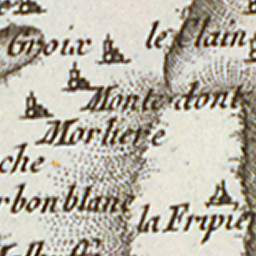 Groix
le Clain
Monte dont
Morliere
che
rbon blanc
la Fripie